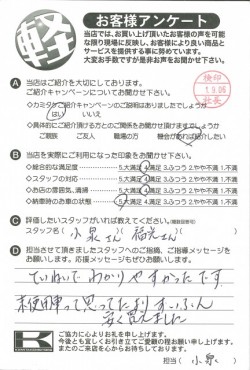 軽
お客様アンケート
当店では、お買い上げ頂いたお客様の声を可能な
限り現場に反映し、お客様により良い商品と
サービスを提供する事に努めています。
大変お手数ですが是非お声をお聞かせ下さい。
検印
1.9.06
社長
A 当店はご紹介を大切にしております。
ご紹介キャンペーンについてお聞かせ下さい。
はい いいえ
ご親戚 ご友人 職場の方 機会があれば紹介したい
B 当店を実際にご利用になった印象をお聞かせ下さい。
◇総合的な満足度 5.大満足 4.満足 3.ふつう 2.やや不満 1.不満
◇スタッフの対応 5.大満足 4.満足 3.ふつう 2.やや不満 1.不満
◇お店の雰囲気、清掃 5.大満足 4.満足 3.ふつう 2.やや不満 1.不満
◇納車時のお車の状態 5.大満足 4.満足 3.ふつう 2.やや不満 1.不満
C 評価したいスタッフがいれば教えてください。
スタッフ名( 小泉さん 福光さん )
D 担当させて頂きましたスタッフへのご指摘、ご指導メッセージを
お願いします。応援メッセージもぜひお願いします。
ていねいでわかりやすかったです
未使用車って思ってたよりずいぶん
安く買えました
K
ご協力に心よりお礼を申し上げます。
今後とも宜しくお引き立てご愛顧の程お願い申し上げます。
またのご来店を心からお待ちしております。
担当( 小泉 )